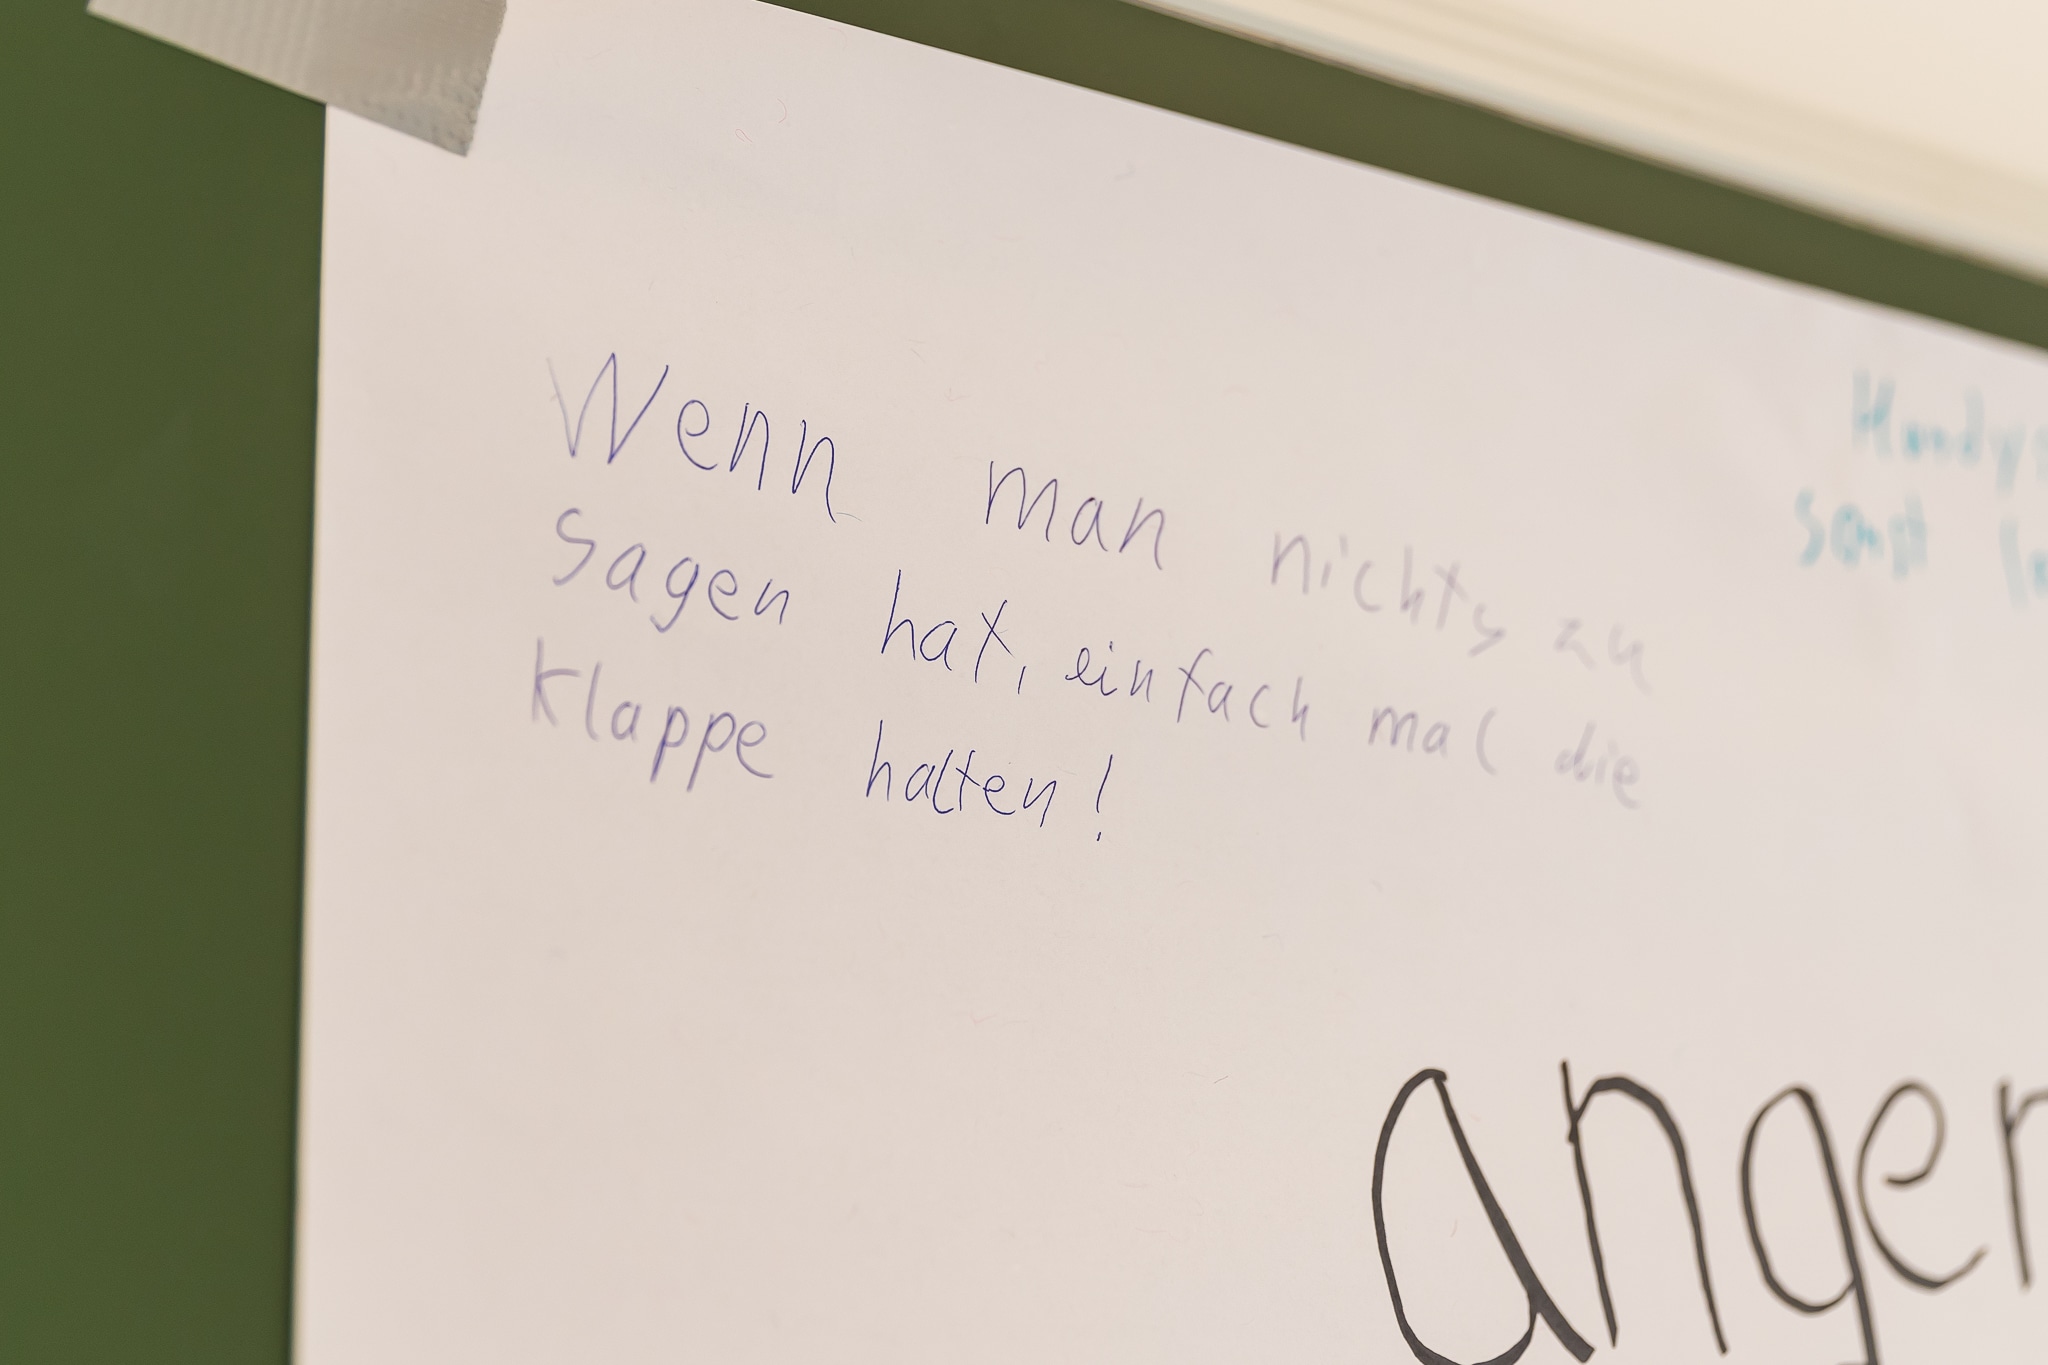 Wenn man nichts zu
sagen hat, einfach mal die
Klappe halten!
Handys
sonst
angen